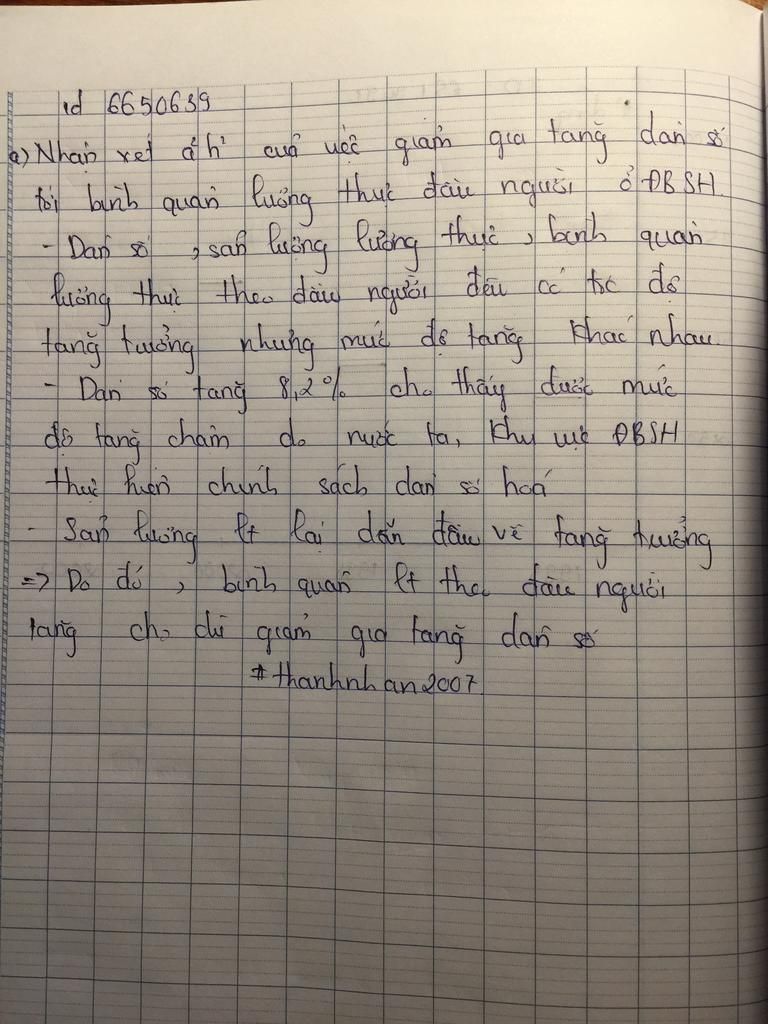 id 6650639
a) Nhận xét ả/h' của việc giảm gia tăng dân số
tới bình quân lương thực đầu người ở ĐBSH
- Dân số, sản lượng lương thực, bình quân
lương thực theo đầu người đều có tốc độ
tăng trưởng nhưng mức độ tăng khác nhau
- Dân số tăng 8,2% cho thấy được mức
độ tăng chậm do nước ta, khu vực ĐBSH
thực hiện chính sách dân số hoá
- Sản lượng lt lại dẫn đầu về tăng trưởng
=> Do đó, bình quân lt theo đầu người
tăng cho dù giảm gia tăng dân số
#thanhnhan2007